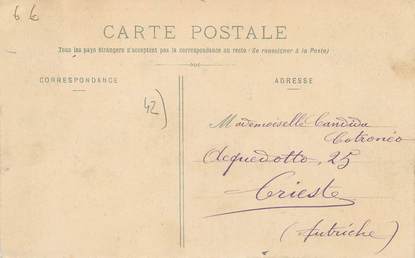 66
CARTE POSTALE
Tous les pays étrangers n'acceptent pas la correspondance au recto (Se renseigner à la Poste)
CORRESPONDANCE
ADRESSE
42)
Mademoiselle Candida
Cotronéo
Acquedotto, 25
Trieste
(Autriche)